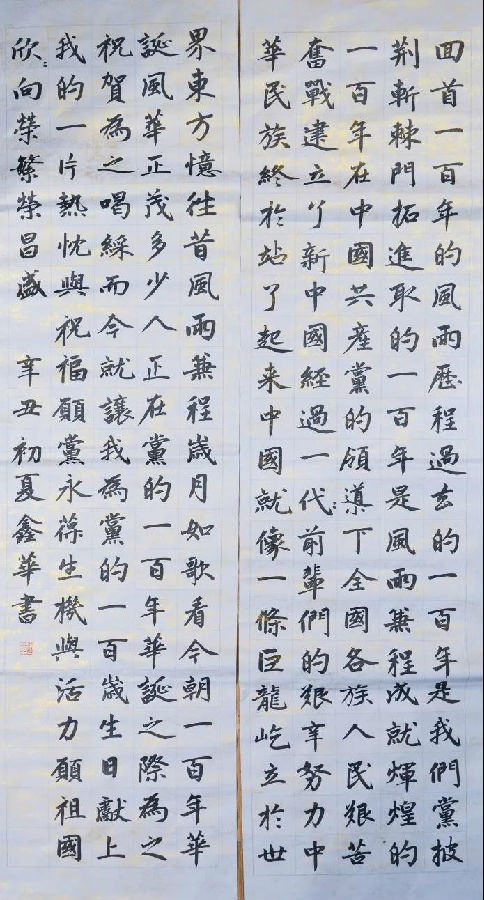 回首一百年的風雨歷程過去的一百年是我們黨披
荆斬棘門拓進取的一百年是風雨兼程成就煇煌的
一百年在中國共產黨的領導下全國各族人民艱苦
奮戰建立了新中國經過一代:前輩們的艱辛努力中
華民族終於站了起来中國就像一條巨龍屹立於世
界東方憶往昔風雨兼程歲月如歌看今朝一百年華
誕風華正茂多少人正在黨的一百年華誕之際為之
祝賀為之喝綵而今就讓我為黨的一百歲生日獻上
我的一片熱忱與祝福願黨永葆生機與活力願祖國
欣:向榮繁榮昌盛 辛丑初夏鑫華書